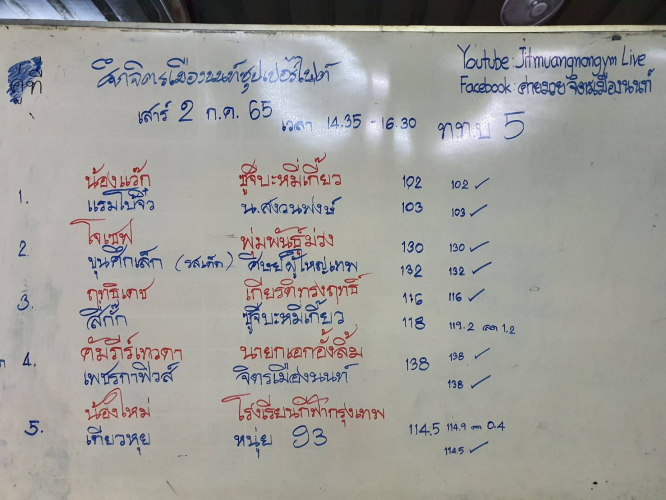 คู่ที่
ศึกจิตรเมืองนนท์ซุปเปอร์ไฟต์
Youtube: Jitmuangnongym Live
Facebook: ค่ายมวยจิตรเมืองนนท์
เสาร์ 2 ก.ค. 65 เวลา 14.35 - 16.30 ททบ 5
น้องแว๊ก ซูจีบะหมี่เกี๊ยว 102 102 ✓
1. แรมโบ้จิ๋ว น.สงวนพงษ์ 103 103 ✓
โจเซฟ พุ่มพันธุ์ม่วง 130 130 ✓
2. ขุนศึกเล็ก (รสเด็ด) ศิษย์ผู้ใหญ่เทพ 132 132 ✓
ฤทธิเดช เกียรติทรงฤทธิ์ 116 116 ✓
3. สีกั๊ก ซูจีบะหมี่เกี๊ยว 118 119.2 ลด 1.2
คัมภีร์เทวดา นายกเอกอั้งลิ้ม 138 ✓
4. 138
เพชรกาฟิวส์ จิตรเมืองนนท์ 138 ✓
น้องใหม่ โรงเรียนกีฬากรุงเทพ
5. 114.5 114.9 ลด 0.4
เกี๊ยวหุย หนุ่ย 93 114.5 ✓